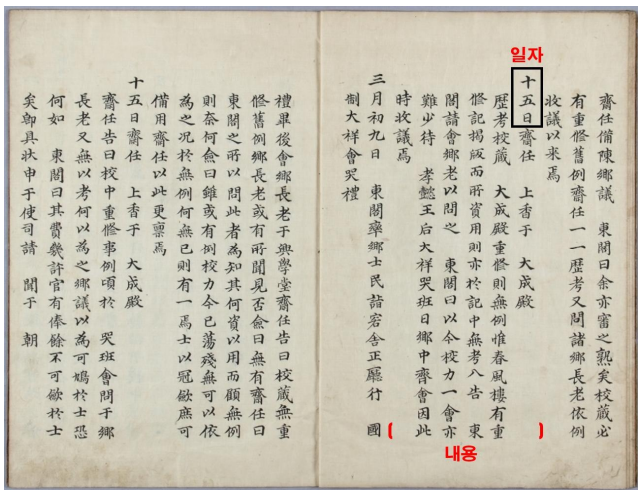 일자
齋任備陳鄕議 東閣曰余亦審之熟矣校蔵必
有重修舊例齋任一一歷考又問諸鄕長老依例
收議以来焉
十五日齋任 上香于 大成殿
歷考校蔵 大成殿重修則無例惟春風樓有重
修記揭版而所資用則亦於記中無考入告 東
閣請會鄕老以問之 東閣曰以今校力一會亦
難少待 孝懿王后大祥哭班日鄕中齊會因此
時收議焉
三月初九日 東閣率鄕士民詣客舍正廳行 國
制大祥會哭禮
내용
禮畢後會鄕長老于興學堂齋任告曰校蔵無重
修舊例鄕長老或有所聞見否僉曰無有齋任曰
東閣之所以問此者為知其何資以用而顧無例
則奈何僉曰雖或有例校力今已蕩殘無可以依
為之况於無例何無已則有一焉士以冠歛庶可
備用齋任以此更稟焉
十五日齋任 上香于 大成殿
齋任告曰校中重修事例頃於 哭班會問于鄕
長老又無以考何以為之鄕議以為可鳩於士恐
何如 東閣曰其費幾許官有俸餘不可歛於士
矣卽具狀申于使司請 聞于 朝